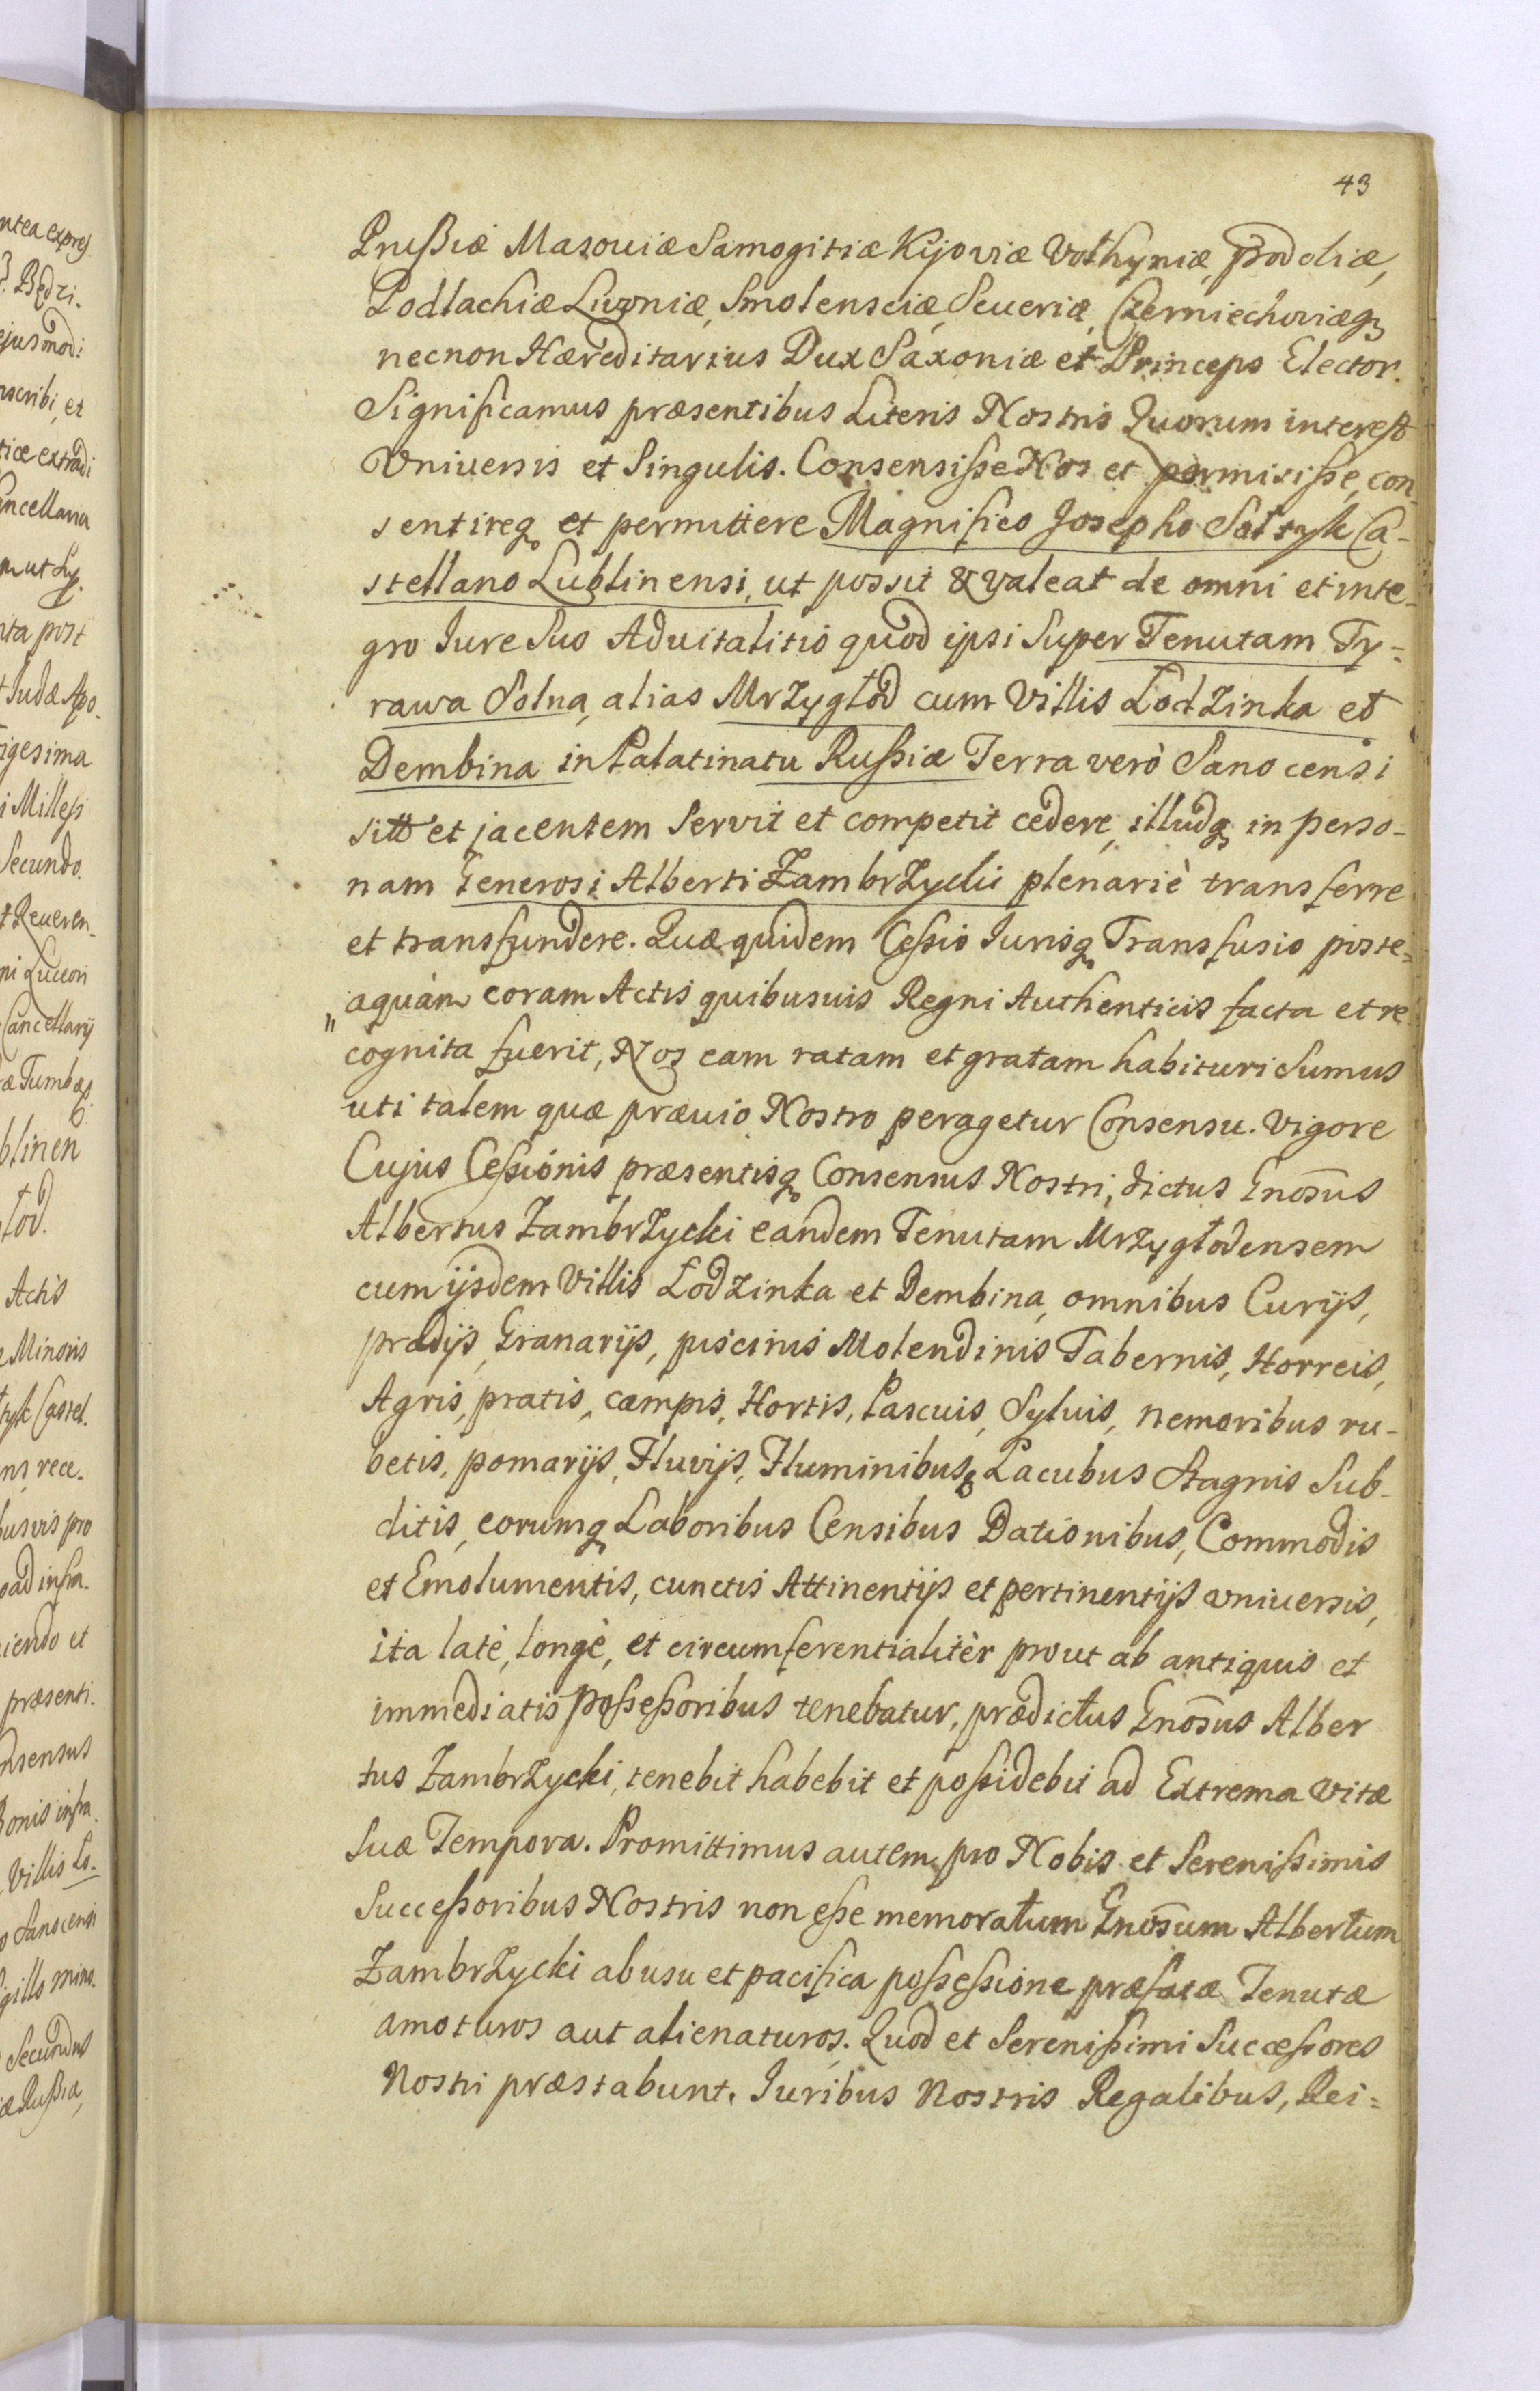 43
Prußiæ Masouiæ Samogitiæ Kijoviæ Vołhyniæ, Podoliæ,
Podlachiæ Livoniæ, Smolensciæ, Seueriæ, Czerniechoviæq3
necnon Hæreditarius Dux Saxoniæ et Princeps Elector.
Significamus præsentibus Literis Nostris Quorum interest
Vniuersis et Singulis. Consensiße Nos et permisiße, con,
sentireq et permittere Magnifico Josepho Sołtyk Ca-
stellano Lublinensi, ut possit & valeat de omni et inte-
gro Jure Suo Aduitalitio quod ipsi Super Tenutam Ty-
rawa Solna, alias Mrzygłod cum Villis Łodzinka et
Dembina in Palatinatu Rußiæ Terra verò Sanocensi
sitt et jacentem Servit et competit cedere, illudq3 in perso-
nam Generosi Alberti Zambrzycki plenariè transferre
et transfundere. Quæ quidem Ceßio Jurisq Transfusio poste=
aquàm coram Actis quibusuis Regni Authenticis facta et re
" cognita fuerit, Nos eam ratam et gratam habituri Sumus
uti talem quæ præuio Nostro peragetur Consensu. Vigore
Cujus Ceßionis præsentisq Consensus Nostri, dictus Gnosus
Albertus Zambrzycki eandem Tenutam Mrzygłodensem
cum ijsdem Villis Łodzinka et Dembina, omnibus Curijs,
prædijs, Granarijs, piscinis Molendinis Tabernis, Horreis,
Agris, pratis, campis, Hortis, Pascuis, Syluis, nemoribus ru-
betis, pomarijs, Fluvijs, Fluminibus, Lacubus Stagnis Sub-
ditis, eorumq Laboribus Censibus Dationibus, Commodis
et Emolumentis, cunctis Attinentijs et pertinentijs vniuersis,
ita latè, longè, et circumferentialitèr prout ab antiquis et
immediatis poßeßoribus tenebatur, prædictus Gnosus Alber
tus Zambrzycki, tenebit habebit et poßidebit ad Extrema Vitæ
Suæ Tempora. Promittimus autem pro Nobis et Serenißimis
Succeßoribus Nostris non eße memoratum Gnosum Albertum
Zambrzycki ab usu et pacifica poßeßione præfatæ Tenutæ
amoturos aut alienaturos. Quod et Serenißimi Succeßores
Nostri præstabunt. Juribus Nostris Regalibus, Rei=